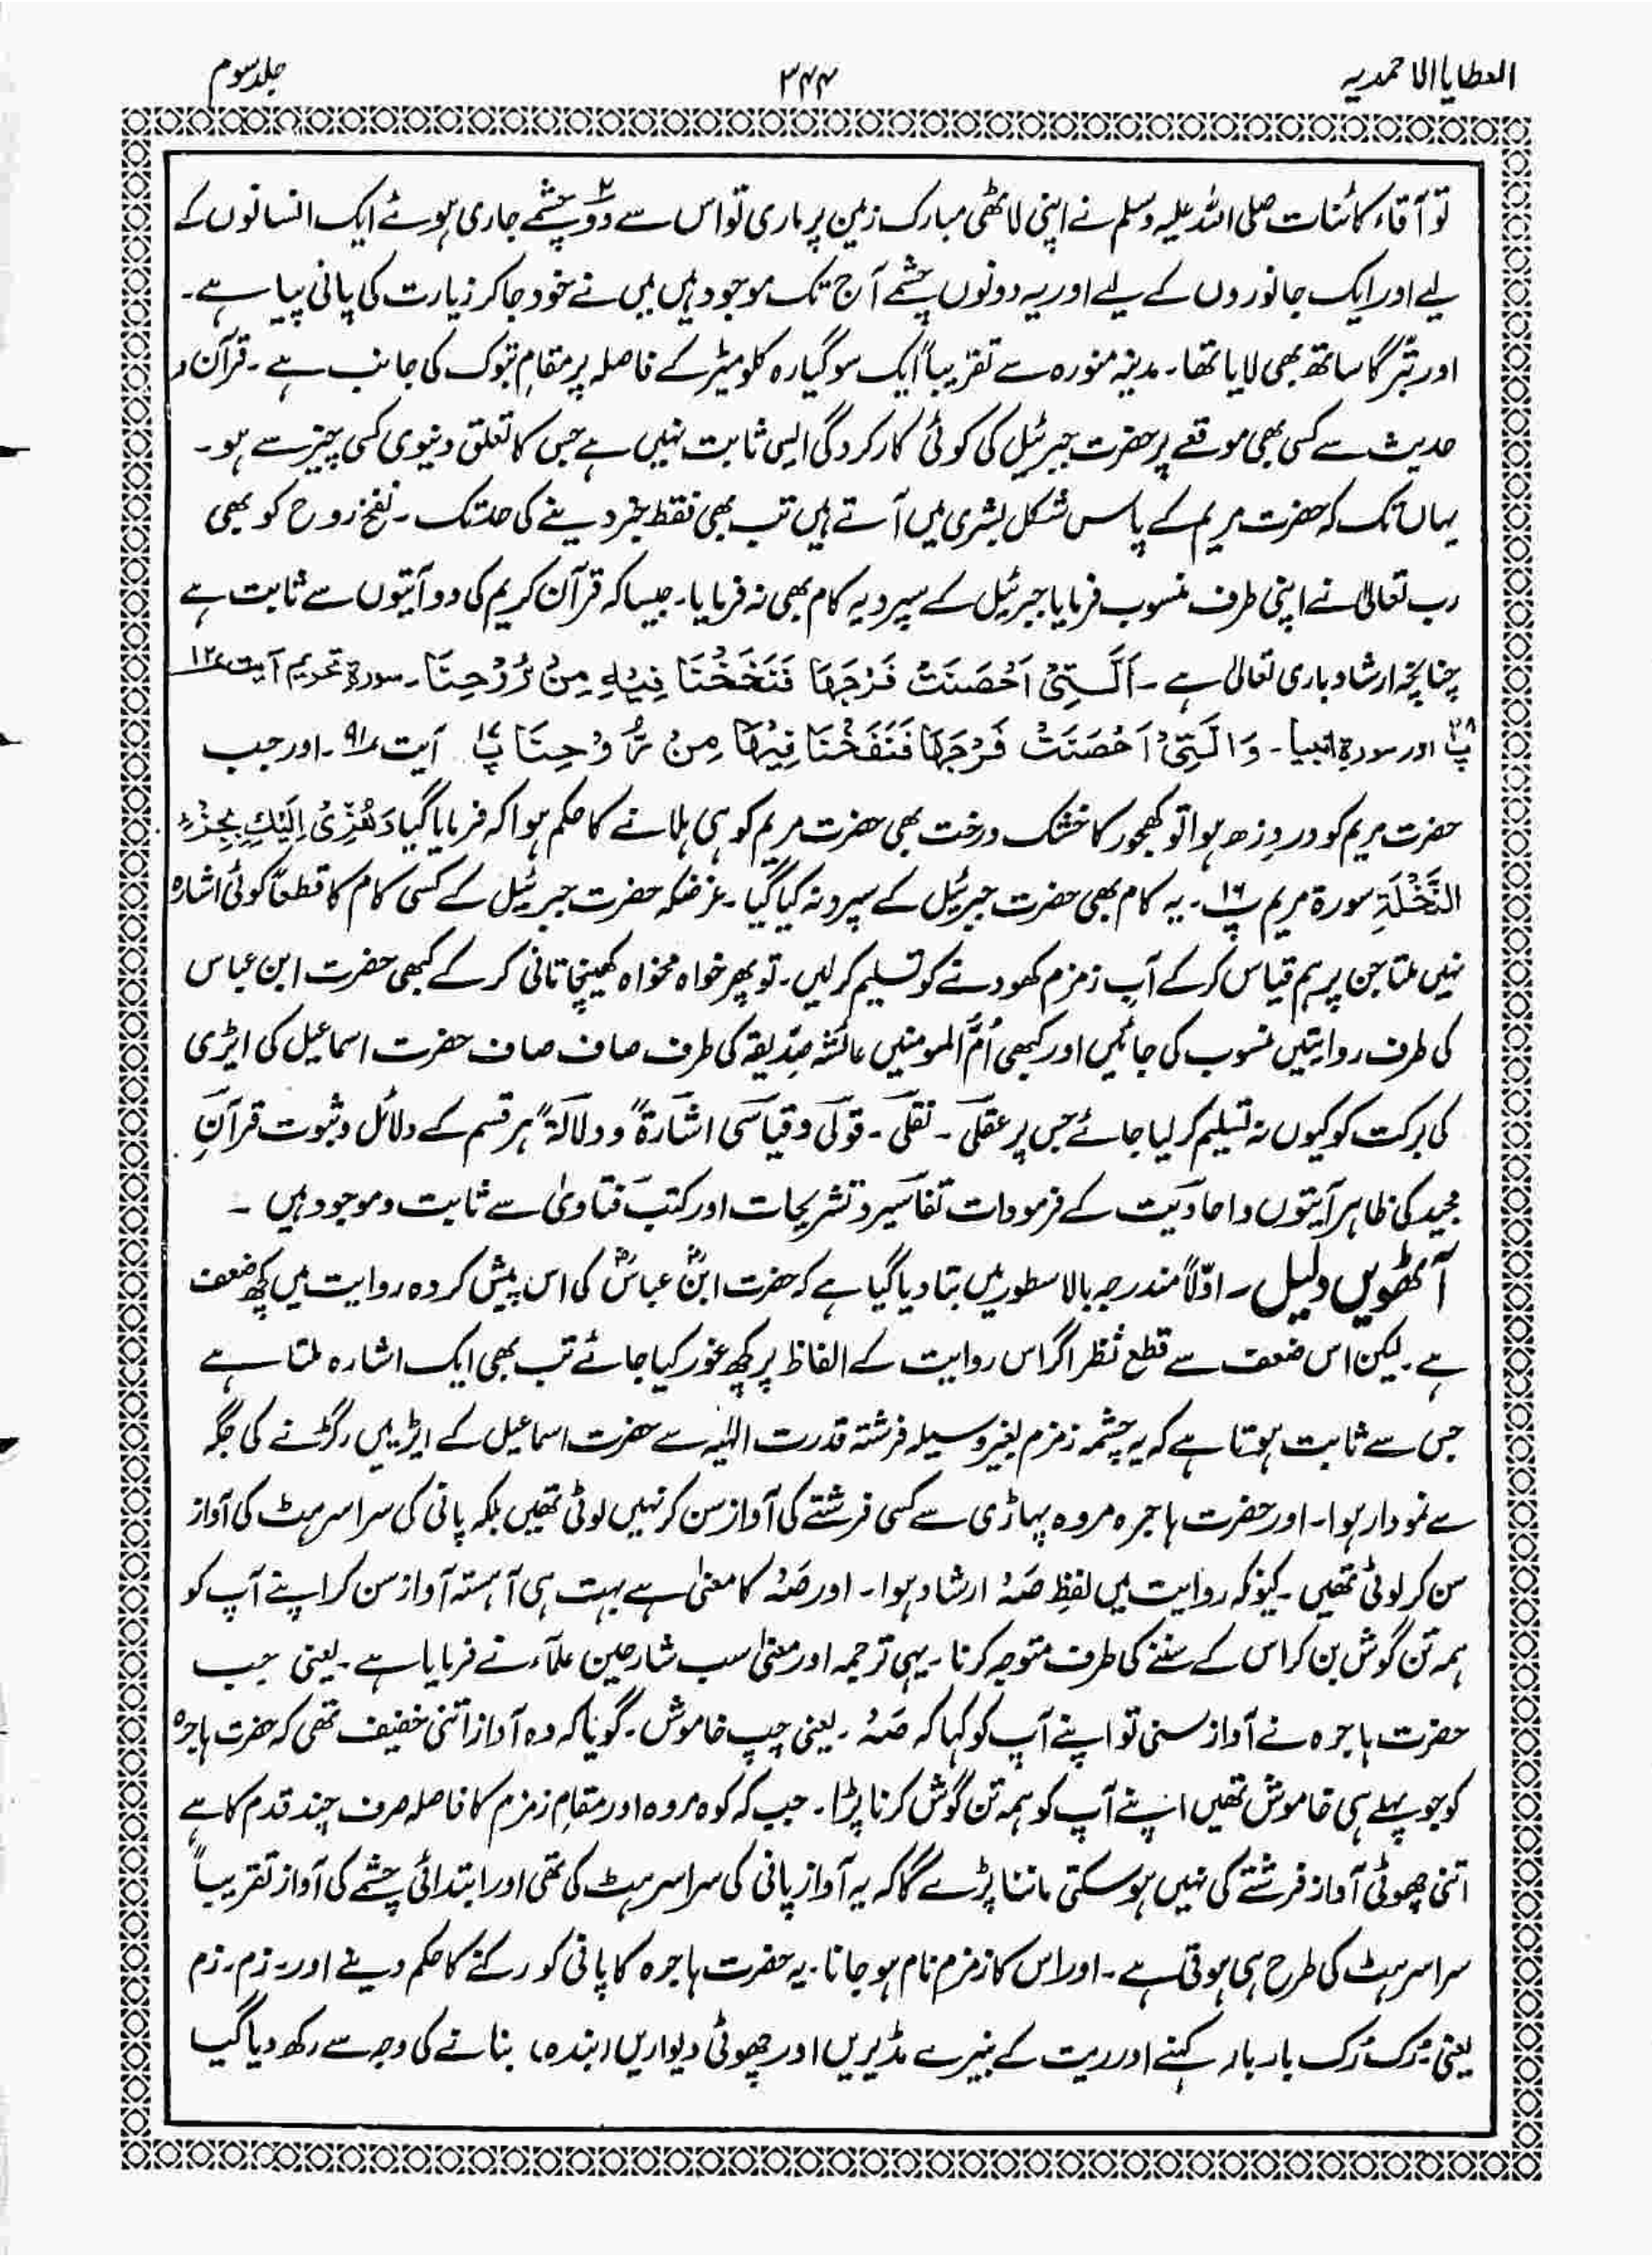 العطایا الاحمدیہ ۳۴۴ جلد سوم
تو آقاء کائنات صلی اللہ علیہ وسلم نے اپنی لاٹھی مبارک زمین پر ماری تو اس سے دو۲ چشمے جاری ہوئے ایک انسانوں کے
لیے اور ایک جانوروں کے لیے اور یہ دونوں چشمے آج تک موجود ہیں میں نے خود جا کر زیارت کی پانی پیا ہے۔
اور تبرّکًا ساتھ بھی لایا تھا۔ مدینہ منورہ سے تقریباً ایک سو گیارہ کلو میٹر کے فاصلہ پر مقامِ تبوک کی جانب ہے۔ قرآن و
حدیث سے کسی بھی موقعے پر حضرت جبرئیل کی کوئی کارکردگی ایسی ثابت نہیں ہے جس کا تعلق دنیوی کسی چیز سے ہو۔
یہاں تک کہ حضرت مریم کے پاس شکل بشری میں آتے ہیں تب بھی فقط خبر دینے کی حد تک۔ نفخِ روح کو بھی
رب تعالیٰ نے اپنی طرف منسوب فرمایا جبرئیل کے سپرد یہ کام بھی نہ فرمایا۔ جیسا کہ قرآن کریم کی دو آیتوں سے ثابت ہے
چنانچہ ارشاد باری تعالیٰ ہے۔ اَلَّتِیْ اَحْصَنَتْ فَرْجَهَا فَنَفَخْنَا فِیْهِ مِنْ رُّوْحِنَا۔ سورۃ تحریم آیت ۱۲
پ۲۸ اور سورۃ انبیا۔ وَالَّتِیْ اَحْصَنَتْ فَرْجَهَا فَنَفَخْنَا فِیْهَا مِنْ رُّوْحِنَا پ۱۷ آیت ۹۱۔ اور جب
حضرت مریم کو دردِ زہ ہوا تو کھجور کا خشک درخت بھی حضرت مریم کو ہی ہلانے کا حکم ہوا کہ فرمایا گیا وَهُزِّیْ اِلَیْكِ بِجِذْعِ
النَّخْلَةِ سورۃ مریم پ۱۶۔ یہ کام بھی حضرت جبرئیل کے سپرد نہ کیا گیا۔ غرضکہ حضرت جبرئیل کے کسی کام کا قطعًا کوئی اشارہ
نہیں ملتا جن پر ہم قیاس کر کے آبِ زمزم کھودنے کو تسلیم کر لیں۔ تو پھر خواہ مخواہ کھینچا تانی کر کے کبھی حضرت ابن عباس
کی طرف روایتیں منسوب کی جائیں اور کبھی اُمُّ المومنیں عائشہ صدّیقہ کی طرف صاف صاف حضرت اسماعیل کی ایڑی
کی برکت کو کیوں نہ تسلیم کر لیا جائے جس پر عقلی۔ نقلی۔ قولی و قیاسی اشارۃً و دلالۃً ہر قسم کے دلائل و ثبوت قرآنِ
مجید کی ظاہر آیتوں و احادیث کے فرمودات تفاسیر و تشریحات اور کتب فتاویٰ سے ثابت و موجود ہیں۔
آٹھویں دلیل۔ اوّلًا مندرجہ بالا سطور میں بتا دیا گیا ہے کہ حضرت ابنِ عباسؓ کی اس پیش کردہ روایت میں کچھ ضعف
ہے۔ لیکن اس ضعف سے قطع نظر اگر اس روایت کے الفاظ پر کچھ غور کیا جائے تب بھی ایک اشارہ ملتا ہے
جس سے ثابت ہوتا ہے کہ یہ چشمہ زمزم بغیر وسیلہ فرشتہ قدرت الٰہیہ سے حضرت اسماعیل کے ایڑیں رگڑنے کی جگہ
سے نمودار ہوا۔ اور حضرت ہاجرہ مروہ پہاڑی سے کسی فرشتے کی آواز سن کر نہیں لوٹی تھیں بلکہ پانی کی سراسرہٹ کی آواز
سن کر لوٹی تھیں۔ کیونکہ روایت میں لفظِ صَہْ ارشاد ہوا۔ اور صَہْ کا معنیٰ ہے بہت ہی آہستہ آواز سن کر اپنے آپ کو
ہمہ تن گوش بن کر اس کے سننے کی طرف متوجہ کرنا۔ یہی ترجمہ اور معنیٰ سب شارحین علماء نے فرمایا ہے۔ یعنی جب
حضرت ہاجرہ نے آواز سنی تو اپنے آپ کو کہا کہ صَہْ۔ یعنی چپ خاموش۔ گویا کہ وہ آواز اتنی خفیف تھی کہ حضرت ہاجرہ
کو جو پہلے ہی خاموش تھیں اپنے آپ کو ہمہ تن گوش کرنا پڑا۔ جب کہ کوہ مروہ اور مقامِ زمزم کا فاصلہ صرف چند قدم کا ہے
اتنی چھوٹی آواز فرشتے کی نہیں ہو سکتی ماننا پڑے گا کہ یہ آواز پانی کی سراسرہٹ کی تھی اور ابتدائی چشمے کی آواز تقریباً
سراسرہٹ کی طرح ہی ہوتی ہے۔ اور اس کا زمزم نام ہو جانا۔ یہ حضرت ہاجرہ کا پانی کو رکنے کا حکم دینے اور۔ زم۔ زم
یعنی رُک رُک بار بار کہنے اور ریت کے بنیرے مڈیریں اور چھوٹی دیواریں (بندھ) بنانے کی وجہ سے رکھ دیا گیا